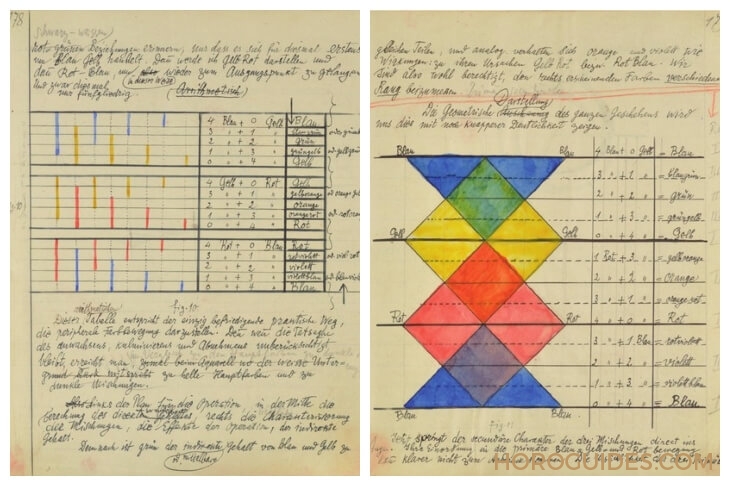 178
schwarz-weissen
rot-grünen Beziehungen erinnern, nur dass es sich für diesmal erstens
um Blau Gelb handelt. Dann werde ich Gelb Rot darstellen und
dann Rot-Blau, um wieder zum Ausgangspunkt zu gelangen
und zwar diesmal
nur fünfgliedrig. (Arithmetisch)
4 Blau + 0 Gelb Blau
3 " + 1 " blaugrün
2 " + 2 " grün
1 " + 3 " grüngelb
0 " + 4 " Gelb
4 Gelb + 0 Rot Gelb
3 " + 1 " gelborange
2 " + 2 " orange
1 " + 3 " orangerot
0 " + 4 " Rot
4 Rot + 0 Blau Rot
3 " + 1 " rotviolett
2 " + 2 " violett
1 " + 3 " violettblau
0 " + 4 " Blau
fig. 10
Diese Tabelle entspricht der einzig befriedigende praktische Weg,
die peripherale Farbbewegung darzustellen. Denn wenn die Tatsache
des anwachsens, kulminierens und Abnehmens unberücksichtigt
bleibt, erreicht man, zumal beim Aquarell wo der weisse Unter-
grund zu helle Hauptfarben und zu
dunkle Mischungen.
links der Plan für die Operation, in der Mitte die
berechnung des rechts die Charakterisierung
der Mischungen, die Effekte der Operation, der indirekte
Gehalt.
Demnach ist grün der indirecte Gehalt von Blau und Gelb zu
gleichen Teilen, und analog verhalten sich orange und violett wie
Wirkungen: zu ihren Ursachen Gelb Rot bezw Rot Blau. Wir
sind also wohl berechtigt, den rechts erscheinenden Farben verschiedenen
Rang beizumessen.
Darstellung
Die Geometrische des ganzen Geschehens wird
uns dies mit noch knapperer Deutlichkeit zeigen.
Blau Blau 4 Blau + 0 Gelb = Blau
3 " + 1 " = blaugrün
2 " + 2 " = grün
1 " + 3 " = grüngelb
Gelb Gelb 0 " + 4 " = Gelb
1 Rot + 3 " = gelborange
2 " + 2 " = orange
3 " + 1 " = orangerot
Rot Rot 4 " + 0 " = Rot
3 " + 1 Blau = rotviolett
2 " + 2 " = violett
1 " + 3 " = violettblau
Blau Blau 0 " + 4 " = Blau
Fig. 11
der secundäre Charakter der drei Mischungen direct ins
Auge. Ihre Einordnung in die primäre Blau Gelb Rot bewegung
HOROGUIDES.COM